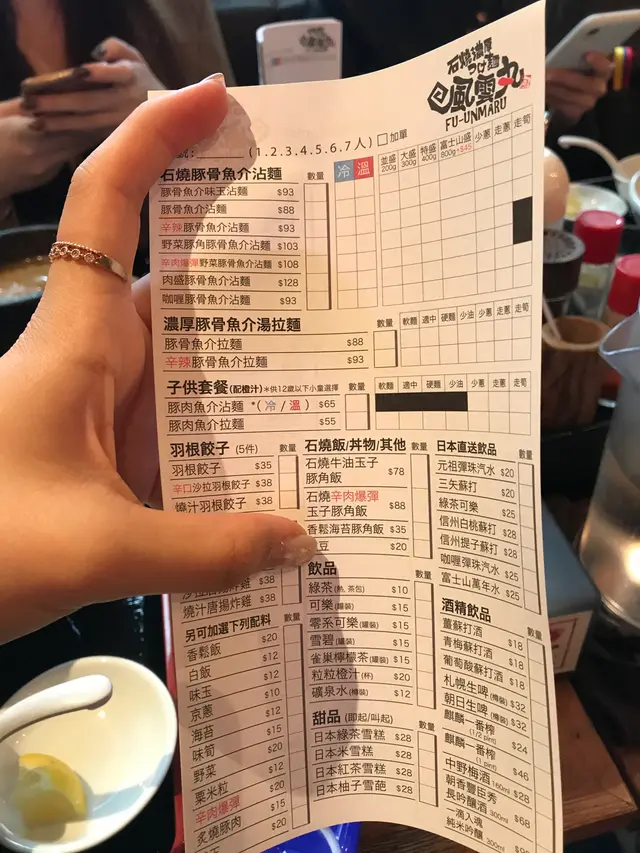 石燒濃厚
つけ麵
風雲丸
FU-UNMARU
(1.2.3.4.5.6.7人) □加單
石燒豚骨魚介沾麵 數量 冷 溫 並盛 200g 大盛 300g 特盛 400g 富士山盛 800g +$45 少蔥 走蔥 走筍
豚骨魚介味玉沾麵 $93
豚骨魚介沾麵 $88
辛辣豚骨魚介沾麵 $93
野菜豚角豚骨魚介沾麵 $103
辛肉爆彈野菜豚骨魚介沾麵 $108
肉盛豚骨魚介沾麵 $128
咖喱豚骨魚介沾麵 $93
濃厚豚骨魚介湯拉麵 數量 軟麵 適中 硬麵 少油 少蔥 走蔥 走筍
豚骨魚介拉麵 $88
辛辣豚骨魚介拉麵 $93
子供套餐 (配橙汁) *供12歲以下小童選擇 數量 軟麵 適中 硬麵 少油 少蔥 走蔥 走筍
豚肉魚介沾麵 *(冷/溫) $65
豚肉魚介拉麵 $55
羽根餃子 (5件) 數量
羽根餃子 $35
辛口沙拉羽根餃子 $38
燒汁羽根餃子 $38
$38
燒汁唐揚炸雞 $38
另可加選下列配料 數量
香鬆飯 $20
白飯 $12
味玉 $12
京蔥 $10
海苔 $12
味筍 $15
野菜 $20
粟米粒 $12
辛肉爆彈 $20
炙燒豚肉 $15
$20
石燒飯/丼物/其他 數量
石燒牛油玉子
豚角飯 $78
石燒辛肉爆彈
玉子豚角飯 $88
香鬆海苔豚角飯 $35
豆 $20
飲品 數量
綠茶 (熱, 茶包) $10
可樂 (罐裝) $15
零系可樂 (罐裝) $15
雪碧 (罐裝) $15
雀巢檸檬茶 (罐裝) $15
粒粒橙汁 (杯) $20
礦泉水 (樽裝) $12
甜品 (即起/叫起) 數量
日本綠茶雪糕 $28
日本米雪糕 $28
日本紅茶雪糕 $28
日本柚子雪葩 $28
日本直送飲品 數量
元祖彈珠汽水 $20
三矢蘇打 $20
綠茶可樂 $25
信州白桃蘇打 $28
信州提子蘇打 $28
咖喱彈珠汽水 $25
富士山萬年水 $25
酒精飲品 數量
薑蘇打酒 $18
青梅蘇打酒 $18
葡萄酸蘇打酒 $18
札幌生啤 (樽裝) $32
朝日生啤 (樽裝) $32
麒麟一番榨 (1/2 pint) $24
麒麟一番榨 (1 pint) $46
中野梅酒 160ml $28
朝香豐臣秀
長吟釀酒 300ml $68
一滴入魂
純米吟釀